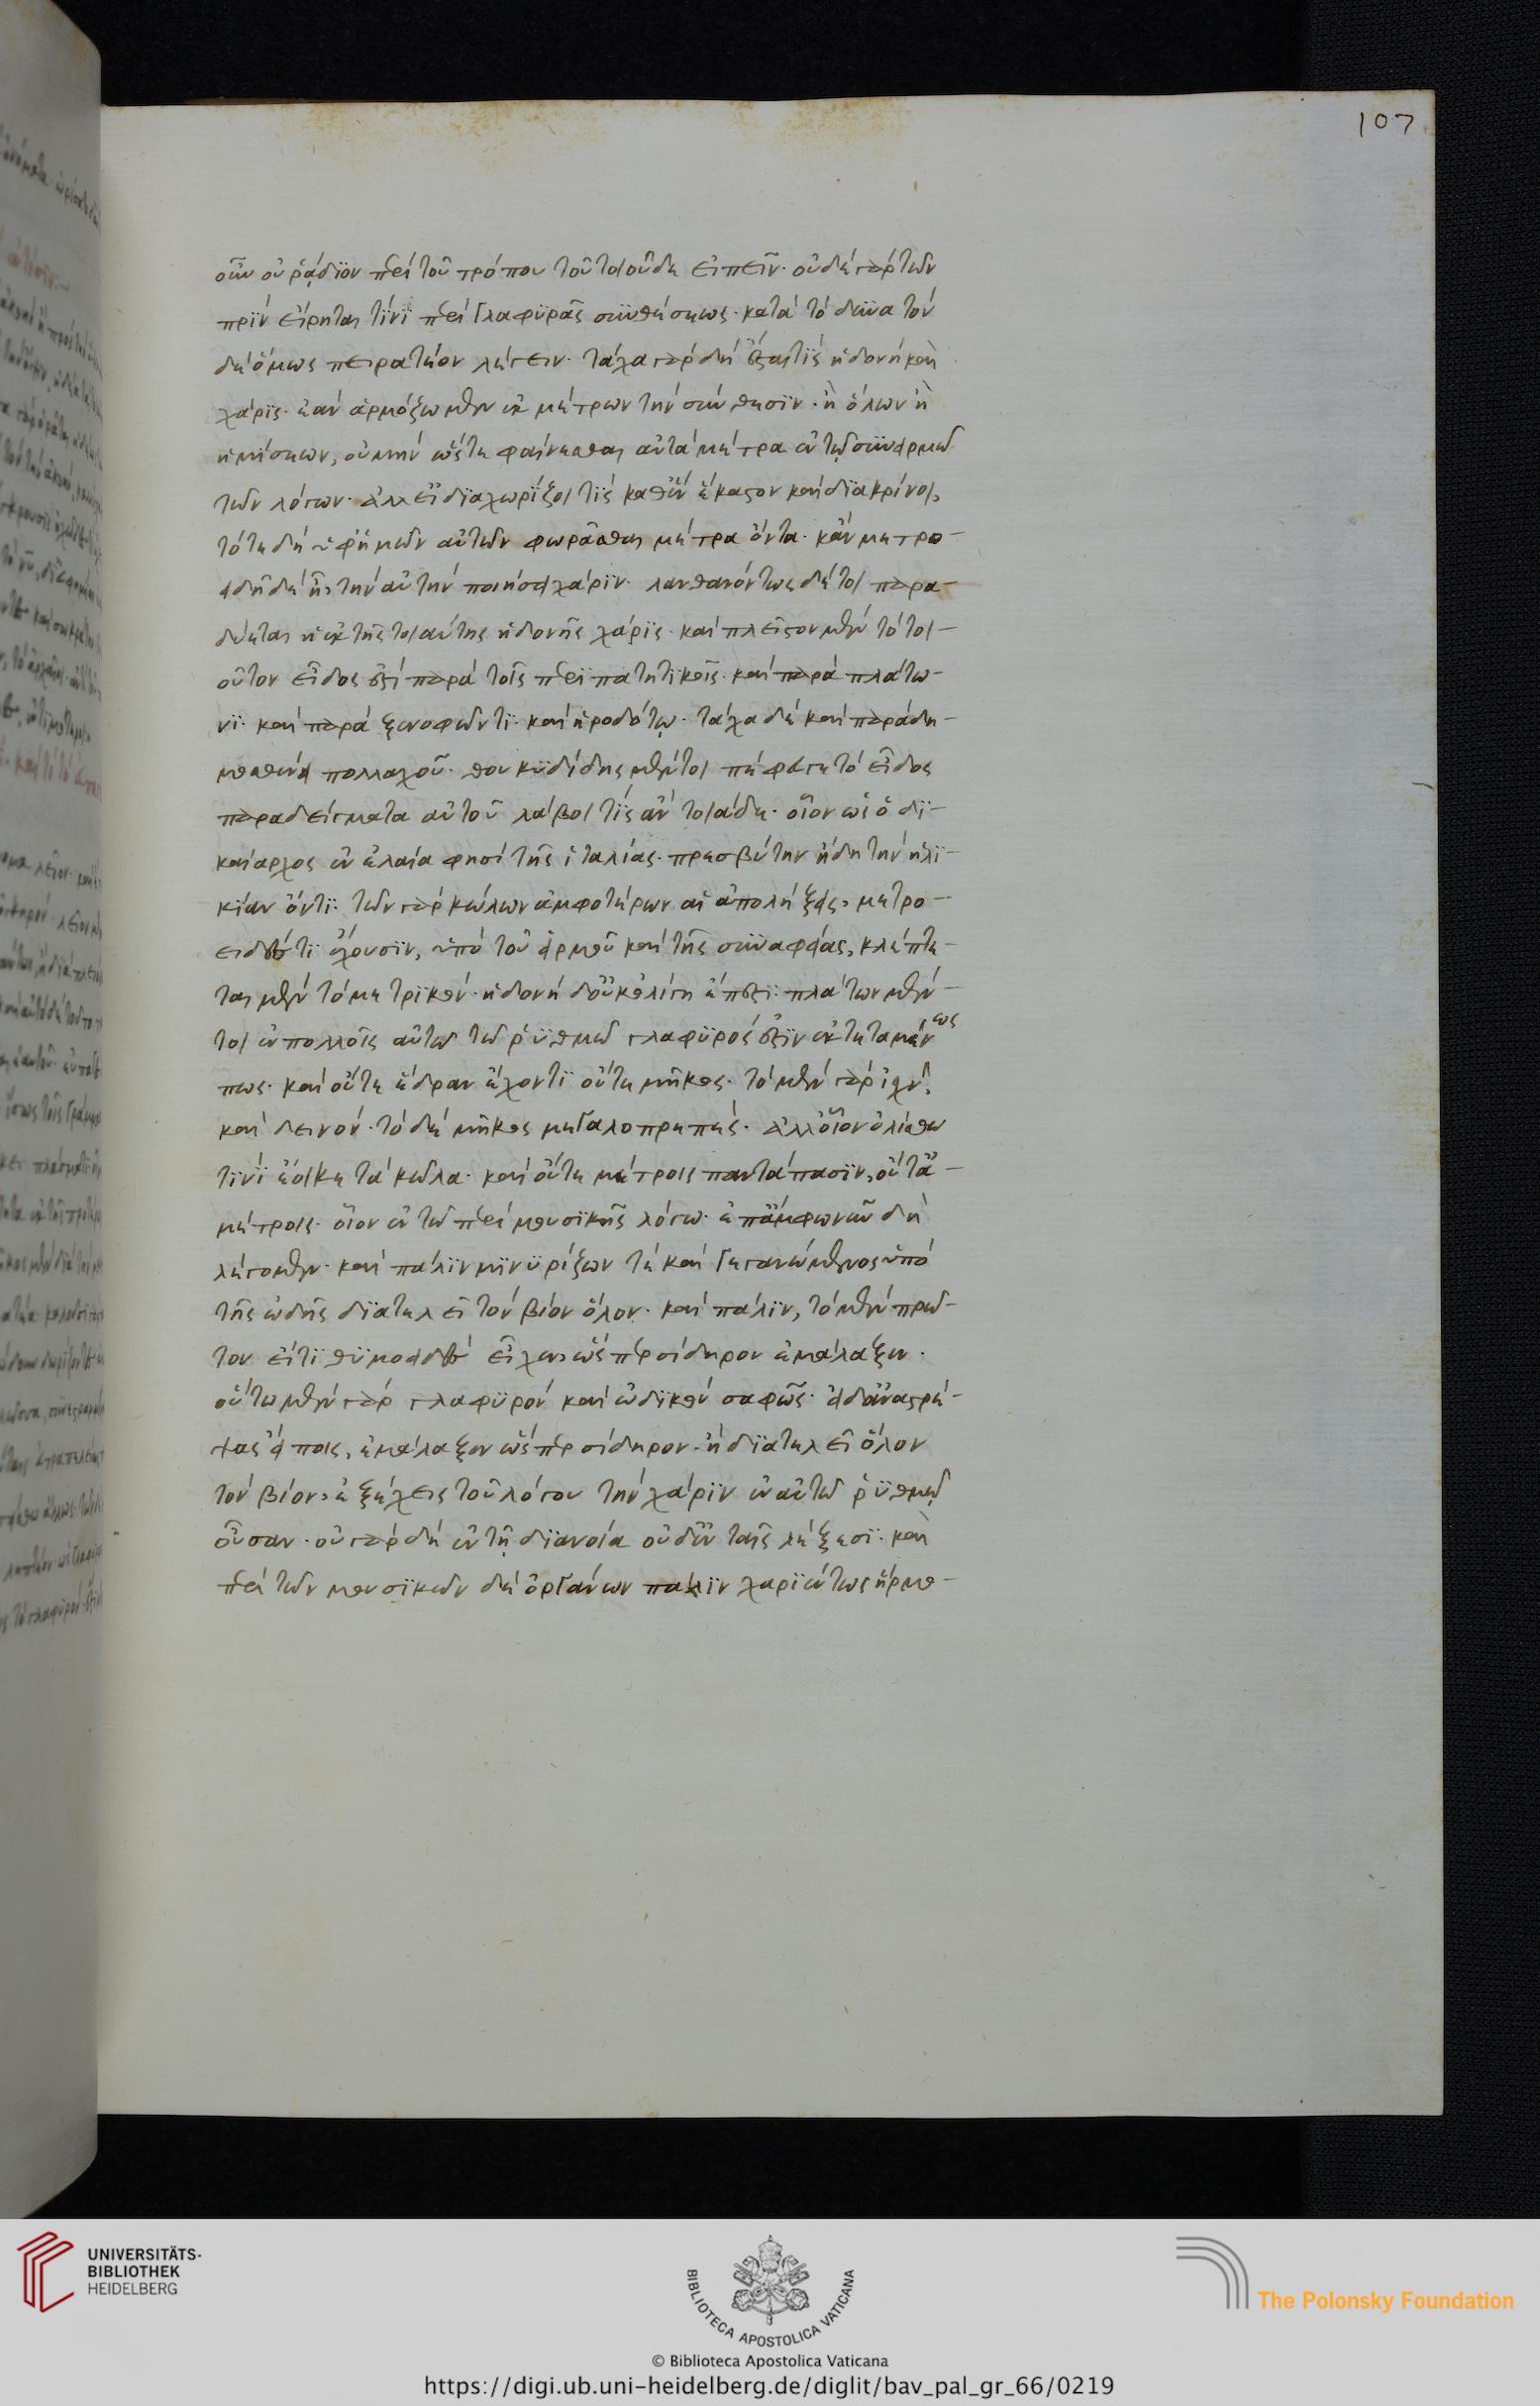 107
οὖν οὐ ῥᾴδϊον περὶ τοῦ τρόπου τοῦ τοιοῦδε εἰπεῖν· οὐδὲ γὰρ τῶν
πρὶν εἴρηταί τινϊ περὶ γλαφυρᾶς συνθέσεως· κατὰ τὸ δυνατὸν
δὲ ὅμως πειρατέον λέγειν· τάχα γὰρ δὴ ἔσται τὶς ἡδονὴ καὶ
χάρις· ἐὰν ἁρμόζωμεν ἐκ μέτρων τὴν σύνθεσιν· ἢ ὅλων ἢ
ἡμίσεων, οὐ μὴν ὥστε φαίνεσθαι αὐτὰ μέτρα ἐν τῷ συνειρμῷ
τῶν λόγων· ἀλλ εἰ διαχωρίζοι τὶς καθ ἓν ἕκαστον καὶ διακρίνοι,
τότε δὴ ὑφ ἡμῶν αὐτῶν φωρᾶσθαι μέτρα ὄντα· κἂν μετρο-
ειδῆ δὲ ᾖ, τὴν αὐτὴν ποιήσει χάριν· λανθανόντως δέ τοι παρα-
δύεται ἡ ἐκ τῆς τοιαύτης ἡδονῆς χάρις· καὶ πλεῖστον μὲν τὸ τοι-
οῦτον εἶδος ἐστὶ παρὰ τοῖς περιπατητικοῖς· καὶ παρὰ πλάτω-
νι· καὶ παρὰ ξενοφῶντι· καὶ ἡροδότῳ· τάχα δὲ καὶ παρὰ δη-
μοσθένει πολλαχοῦ· θουκυδίδης μέντοι πέφευγε τὸ εἶδος
παραδείγματα αὐτοῦ λάβοι τὶς ἂν τοιάδε· οἷον ὡς ὁ δι-
καίαρχος ἐν ἐλαία φησὶ τῆς ἰταλίας· πρεσβύτην ἤδη τὴν ἡλι-
κίαν ὄντι· τῶν γὰρ κώλων ἀμφοτέρων αἱ ἀπολήξεις, μετρο-
ειδές τι ἔχουσιν, ὑπὸ τοῦ εἱρμοῦ καὶ τῆς συναφείας, κλέπτε-
ται μὲν τὸ μετρικόν· ἡδονὴ δ οὐκ ὀλίγη ἔπεστι· πλάτων μέν-
τοι ἐν πολλοῖς αὐτῶ τῶ ῥυθμῶ γλαφυρός ἐστιν ἐκτεταμένως
πως· καὶ οὔτε ἕδραν ἔχοντι οὔτε μῆκος· τὸ μὲν γὰρ ἰχνόν
καὶ δεινόν· τὸ δὲ μῆκος μεγαλοπρεπές· ἀλλ οἷον ὀλίσθω
τινὶ ἔοικε τὰ κῶλα· καὶ οὔτε μέτροις παντάπασιν, οὔτ ἀ-
μέτροις· οἷον ἐν τῶ περὶ μουσικῆς λόγω· ἐπὰμφων νῦν δὴ
λέγομεν· καὶ πάλιν μινυρίζων τὲ καὶ γεγανώμενος ὑπὸ
τῆς ὠδῆς διατελεῖ τὸν βίον ὅλον· καὶ πάλιν, τὸ μὲν πρῶ-
τον εἴτι θυμοειδὲς εἶχεν, ὥσπερ σίδηρον ἐμάλαξεν·
οὕτω μὲν γὰρ γλαφυρὸν καὶ ὠδικὸν σαφῶς· εἰ δ ἀναστρέ-
ψας εἴποις, ἐμάλαξεν ὥσπερ σίδηρον· ἢ διατελεῖ ὅλον
τὸν βίον, ἐξέχεις τοῦ λόγου τὴν χάριν ἐν αὐτῶ ῥυθμῷ
οὖσαν· οὐ γὰρ δὴ ἐν τῇ διανοία οὐδ ἐν ταῖς λέξεσι· καὶ
περὶ τῶν μουσικῶν δὲ ὀργάνων πάλιν χαριέντως ἥρμο-
UNIVERSITÄTS-
BIBLIOTHEK
HEIDELBERG
BIBLIOTECA APOSTOLICA VATICANA
The Polonsky Foundation
© Biblioteca Apostolica Vaticana
https://digi.ub.uni-heidelberg.de/diglit/bav_pal_gr_66/0219